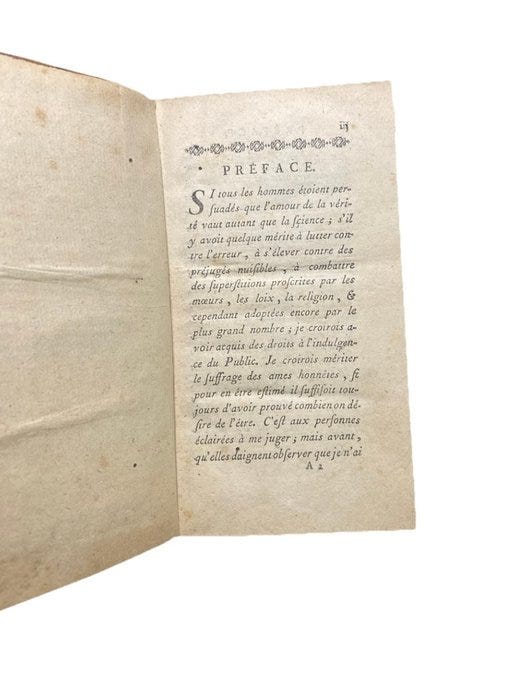 iij
PRÉFACE.
SI tous les hommes étoient per-
ſuadés que l'amour de la véri-
té vaut autant que la ſcience ; s'il
y avoit quelque mérite à lutter con-
tre l'erreur, à s'élever contre des
préjugés nuiſibles, à combattre
des ſuperſtitions proſcrites par les
mœurs, les loix, la religion, &
cependant adoptées encore par le
plus grand nombre ; je croirois a-
voir acquis des droits à l'indulgen-
ce du Public. Je croirois mériter
le ſuffrage des ames honnêtes, ſi
pour en être eſtimé il ſuffiſoit tou-
jours d'avoir prouvé combien on dé-
ſire de l'être. C'eſt aux perſonnes
éclairées à me juger ; mais avant,
qu'elles daignent obſerver que je n'ai
A 2